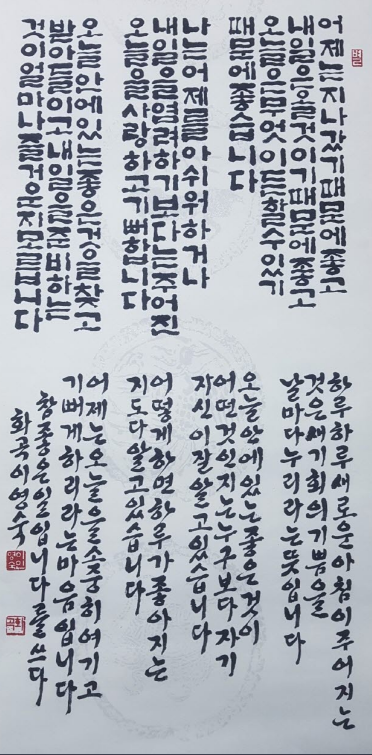 어제는지나갔기때문에좋고
내일은올것이기때문에좋고
오늘은무엇이든할수있기
때문에좋습니다
나는어제를아쉬워하거나
내일을염려하기보다는주어진
오늘을사랑하고기뻐합니다
오늘안에있는좋은것을찾고
받아들이고내일을준비하는
것이얼마나즐거운지모릅니다
하루하루새로운아침이주어지는
것은새기회의기쁨을
날마다누리라는뜻입니다
오늘안에있는좋은것이
어떤것인지는누구보다자기
자신이잘알고있습니다
어떻게하면하루가좋아지는
지도다알고있습니다
어제는오늘을소중히여기고
기뻐게하리라는마음입니다
참좋은일입니다를쓰다
화곡이영숙